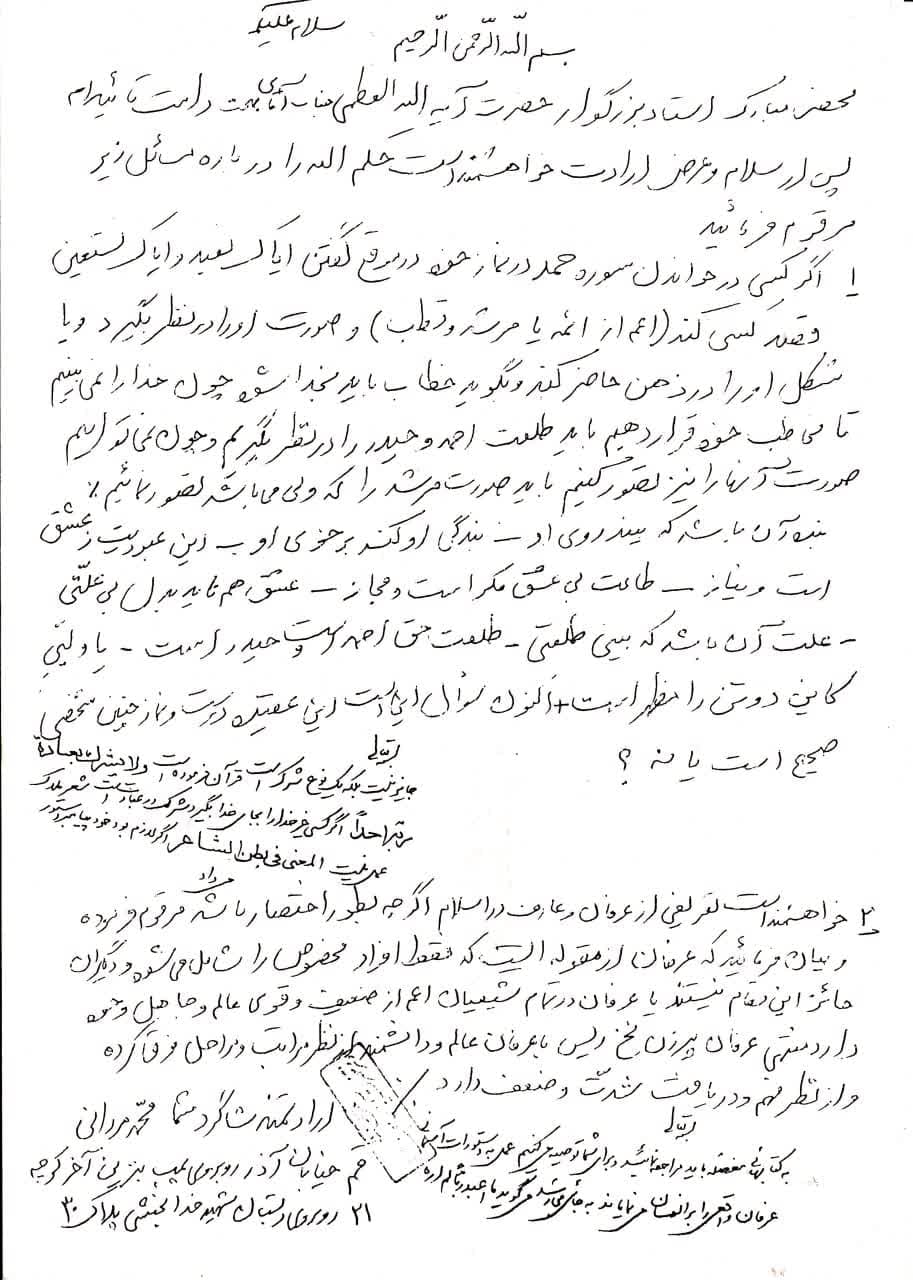 سلام علیکم
بسم الله الرحمن الرحیم
محضر مبارک استاد بزرگوار حضرت آیه الله العظمی جناب آقای بهجت دامت تائیداته
پس از سلام و عرض ارادت خواهشمند است حکم الله را در باره مسائل زیر
مرقوم فرمائید
۱ اگر کسی در خواندن سوره حمد در نماز خود در موقع گفتن ایاک نعبد و ایاک نستعین
قصد کسی کند (اعم از ائمه یا مرشد و قطب) و صورت او را در نظر بگیرد و یا
شکل او را در ذهن حاضر کند و بگوید خطاب باید بخدا شود چون خدا را نمی بینیم
تا مخاطب خود قرار دهیم باید طلعت احمد و حیدر را در نظر بگیریم و چون نمی توانیم
صورت آنها را نیز تصور کنیم باید صورت مرشد را که ولی می باشد تصور نمائیم
بنده آن باشد که بیند روی او – بندگی او کند بر خوی او – این عبودیت ز عشق
است و نیاز – طاعت بی عشق مکر است و مجاز – عشق هم ناید بدل بی علتی
– علت آن باشد که بینی طلعتی – طلعت حق احمد است و حیدر است – یا ولیی
کاین دو تن را مظهر است + اکنون سؤال این است این عقیده درست و نماز چنین شخصی
صحیح است یا نه ؟
جایز نیست بلکه یک نوع شرک است قرآن فرموده است ولا یشرک بعبادة
ربه احداً اگر کسی غیر خدا را بجای خدا بگیرد شرک در عبادت است شعر مدرک
عمل نیست المعنی فی بطن الشاعر اگر لازم بود خود پیامبر دستور
می داد
۲ خواهشمند است تعریفی از عرفان و عارف در اسلام اگر چه بطور اختصار باشد مرقوم فرموده
و بیان فرمائید که عرفان از مقوله ایست که فقط افراد مخصوص را شامل می شود و دیگران
حائز این مقام نیستند یا عرفان در تمام شیعیان اعم از ضعیف و قوی عالم و جاهل وجود
دارد منتهی عرفان پیرزن نخ ریس با عرفان عالم و دانشمند از نظر مراتب و مراحل فرق کرده
و از نظر فهم و دریافت شدت و ضعف دارد
ارادتمند شاگرد شما محمد مردانی
قم خیابان آذر روبروی پمپ بنزین آخر کوچه
۲۱ روبروی دبستان شهید خدابخشی پلاک ۳۰
به کتابهای مفصله باید مراجعه نمائید و برای شما توصیه می کنیم عمل به دستورات آسمانی
عرفان واقعی را بر انسان می نمایاند به جائی می رسد می گوید ما اعبد ربا لم اره